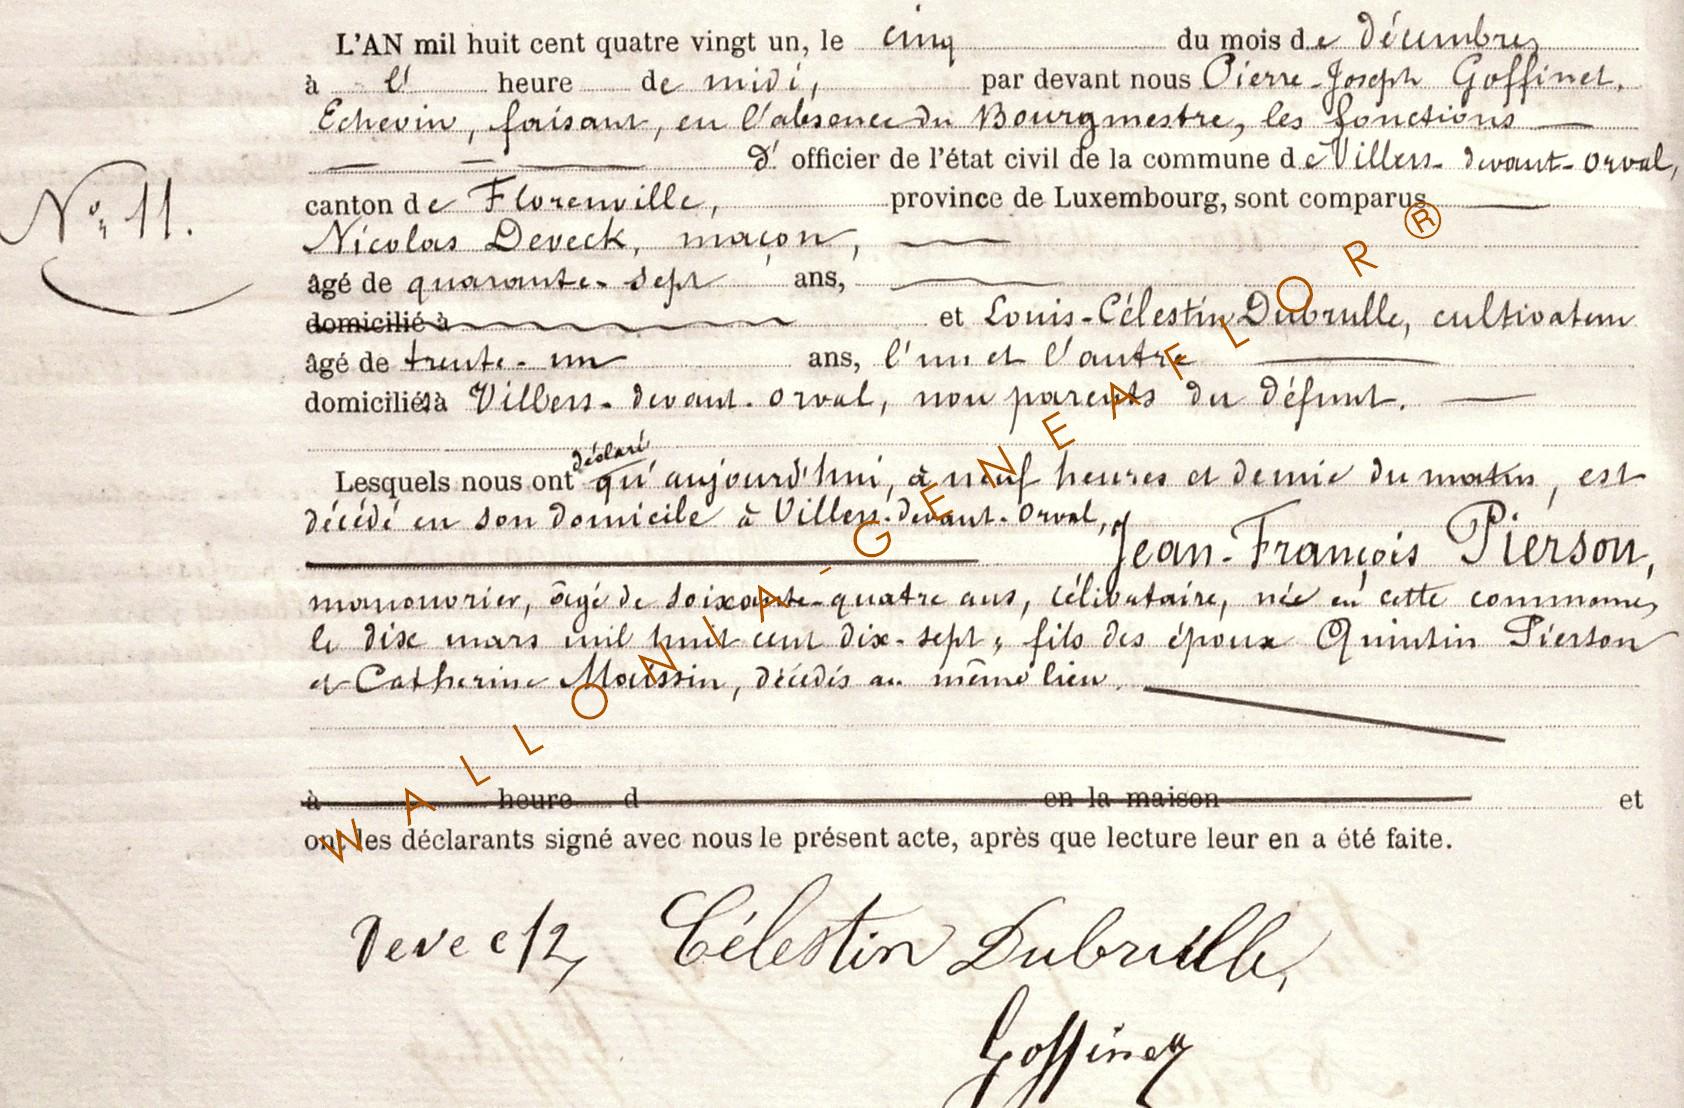 L'AN mil huit cent quatre vingt un, le cinq du mois de décembre,
à l' heure de midi, par devant nous Pierre-Joseph Goffinet,
Echevin, faisant, en l'absence du Bourgmestre, les fonctions
d' officier de l'état civil de la commune de Villers-devant-Orval,
canton de Florenville, province de Luxembourg, sont comparus
Nº 11.
Nicolas Deveck, maçon,
âgé de quarante-sept ans,
domicilié à et Louis-Célestin Dubrulle, cultivateur
âgé de trente-un ans, l'un et l'autre
domiciliés à Villers-devant-Orval, non parents du défunt.
déclaré
Lesquels nous ont qu'aujourd'hui, à neuf heures et demie du matin, est
décédé en son domicile à Villers-devant-Orval,
Jean-François Pierson,
manouvrier, âgé de soixante-quatre ans, célibataire, née en cette commune,
le dix mars mil huit cent dix-sept, fils des époux Quintin Pierson
et Catherine Moussin, décédés au même lieu.
à heure d en la maison et
ont les déclarants signé avec nous le présent acte, après que lecture leur en a été faite.
Deveck Célestin Dubrulle,
Goffinet
WALLONIA-GENEAFLOR®